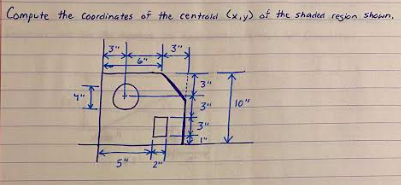 Compute the coordinates of the centroid (x,y) of the shaded region shown.
3" 3"
6"
3"
4"
3" 10"
3"
1"
5" 2"